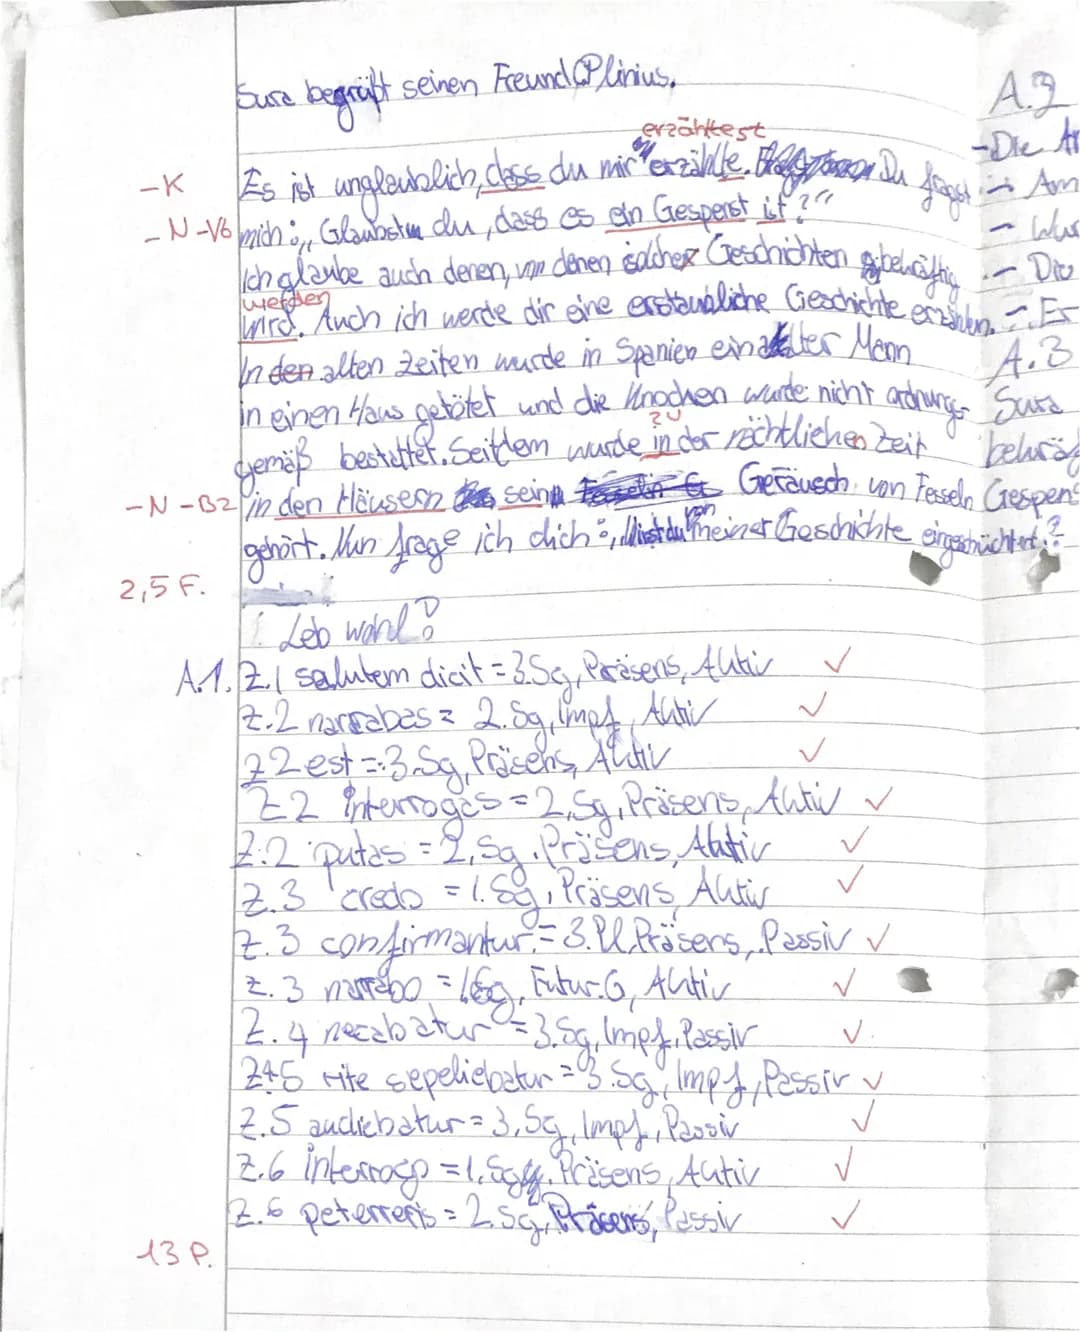 Sura begrüßt seinen Freund Plinius.
erzähltest
-K Es ist unglaublich, dass du mir erzählte. Du fragst
-N-Vb mich: „Glaubst du, dass es ein Gesperst ist?"
Ich glaube auch denen, von denen solche Geschichten bekräftig
werden
wird. Auch ich werde dir eine erstaunliche Geschichte erzählen.
In den alten Zeiten wurde in Spanien ein alter Mann
in einen Haus getötet und die Knochen wurde nicht ordnungs-
zu
gemäß bestattet. Seitdem wurde in der nächtlichen Zeit
-N-B2 in den Häusern sein Geräusch von Fesseln
von
gehört. Nun frage ich dich: Wirst du meiner Geschichte eingeschüchtert?
2,5 F.
Leb wohl!
A.1. Z.1 salutem dicit = 3.Sg, Präsens, Aktiv ✓
Z.2 narrabas = 2.Sg, Impf, Aktiv ✓
Z2 est = 3.Sg, Präsens, Aktiv ✓
Z2 interrogas = 2.Sg, Präsens, Aktiv ✓
Z.2 putas = 2.Sg. Präsens, Aktiv ✓
Z.3 credo = 1.Sg, Präsens, Aktiv ✓
Z.3 confirmantur = 3.Pl. Präsens, Passiv ✓
Z.3 narrabo = 1.Sg, Futur, Aktiv ✓
Z.4 necabatur = 3.Sg, Impf, Passiv ✓
Z4-5 rite sepeliebatur = 3.Sg, Impf, Passiv ✓
Z.5 audiebatur = 3.Sg, Impf, Passiv ✓
Z.6 interrogo = 1.Sg, Präsens, Aktiv ✓
Z.6 peterreris = 2.Sg, Präsens, Passiv ✓
13 P.
A.2
-Die
A.3
Sura
bekräf
Gespens